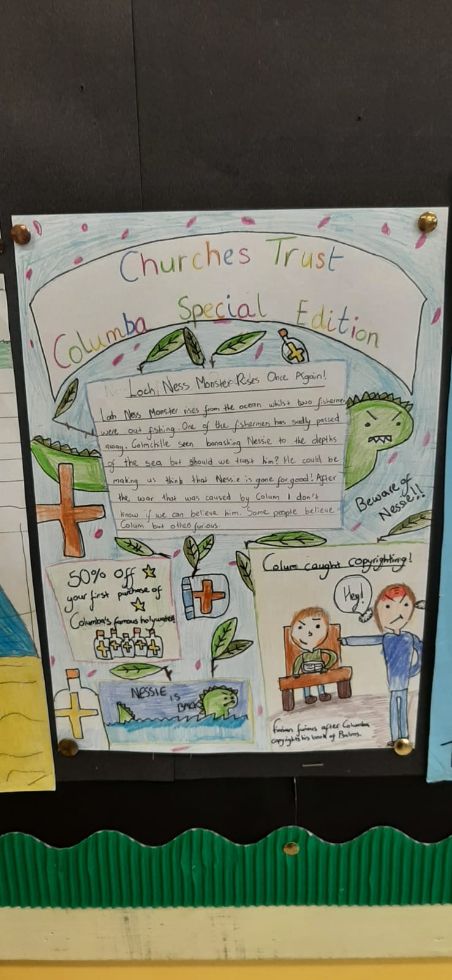 Churches Trust
Columba Special Edition
Loch Ness Monster Rises Once Again!
Loch Ness Monster rises from the ocean whilst two fishermen
were out fishing. One of the fishermen has sadly passed
away. Colmcille seen banashing Nessie to the depths
of the sea but should we trust him? He could be
making us think that Nessie is gone for good! After
the war that was caused by Colum I don't
know if we can believe him. Some people believe
Colum but others furious.
Beware of
Nessie!!
50% off
your first purchase of
Columba's famous holywater
NESSIE IS
BACK
Colum caught copyrighting!
Hey!
furious after Columba
copyrights his book of Psalms.